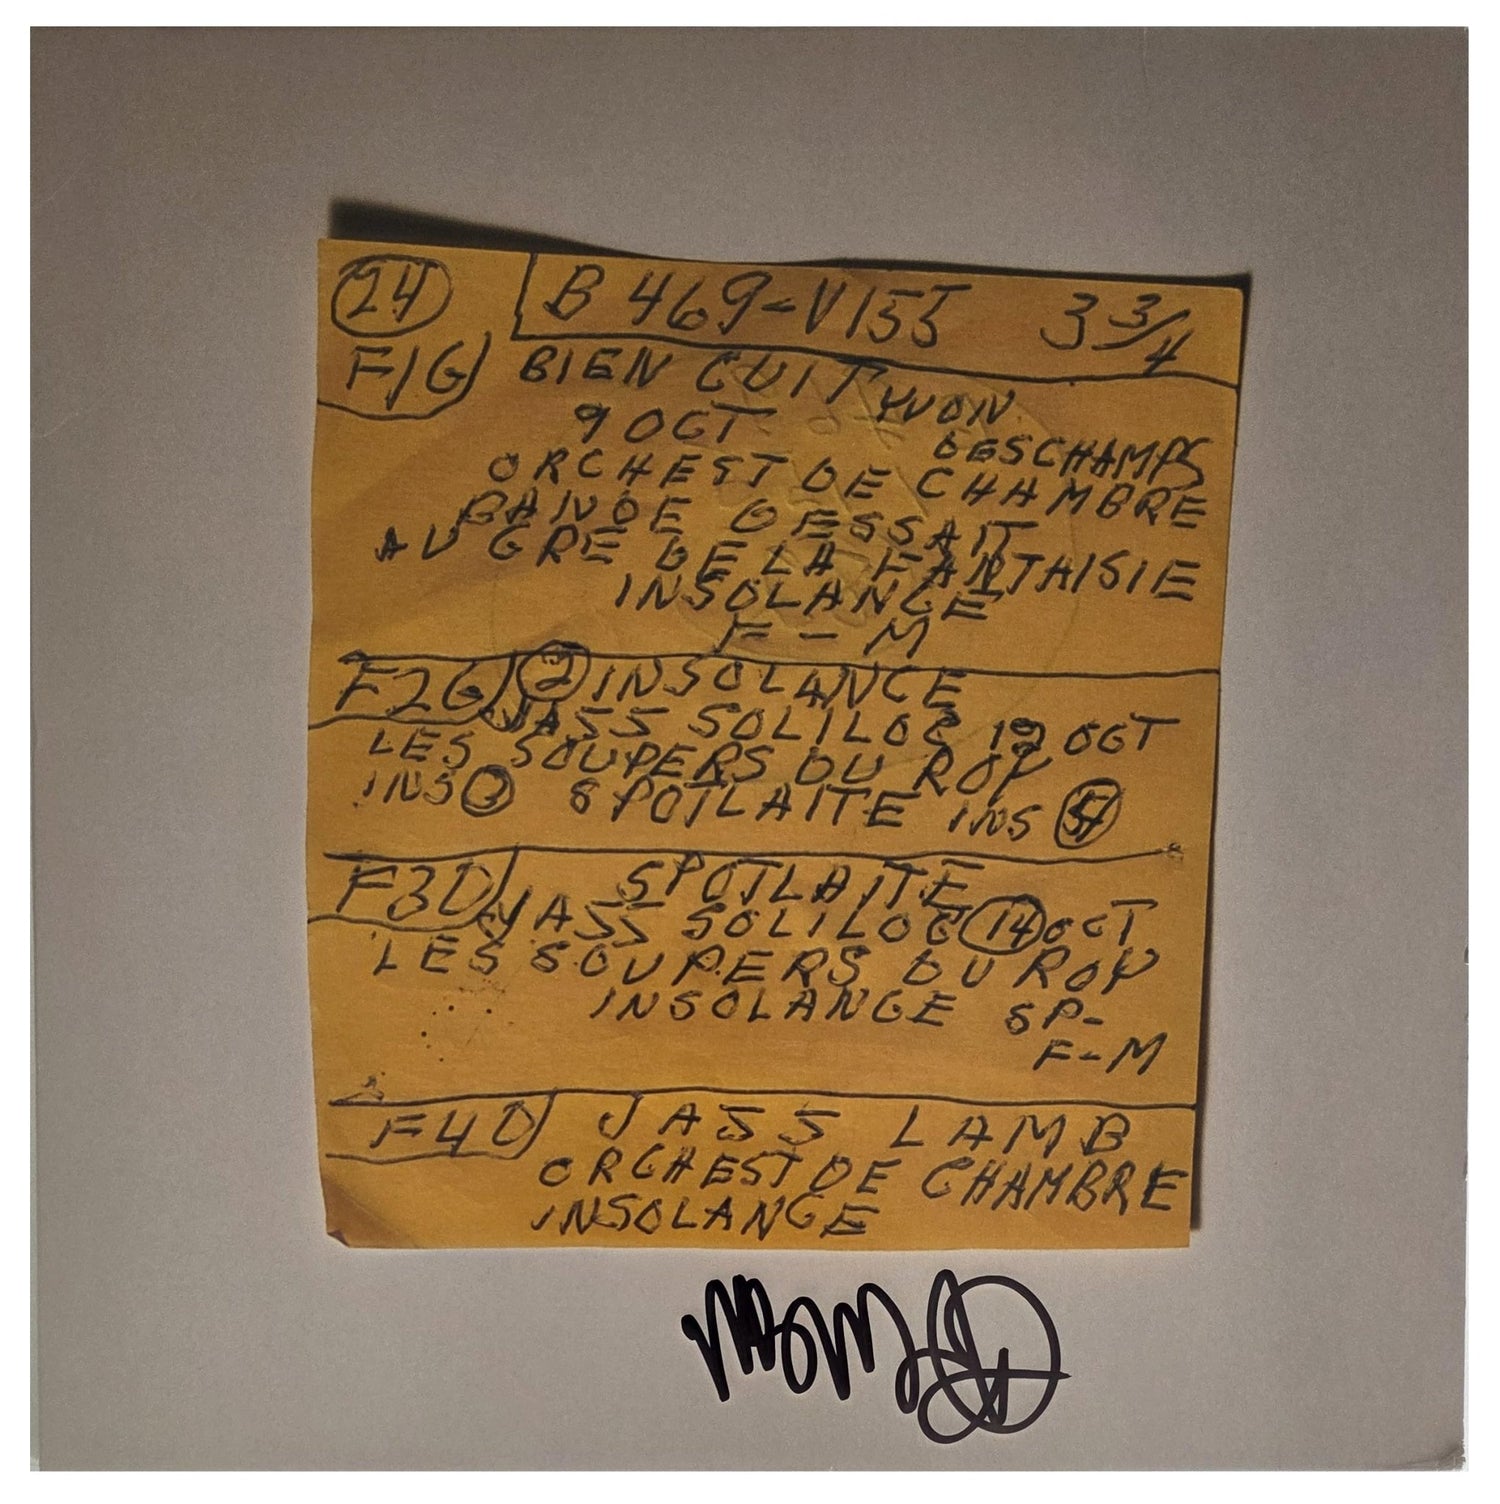 24 B 469-V155 3 3/4
F1G BIEN CUIT YVON
9 OCT DESCHAMPS
ORCHEST DE CHAMBRE
BANDE DESSAIT
AU GRE DE LA FANTAISIE
INSOLANCE
F-M
F2G 2 INSOLANCE
JASS SOLILOC OCT
LES SOUPERS DU ROY
INS SPOTLAITE INS
F3D SPOTLAITE
JASS SOLILOC 14 OCT
LES SOUPERS DU ROY
INSOLANCE SP-
F-M
F4D JASS LAMB
ORCHEST DE CHAMBRE
INSOLANCE